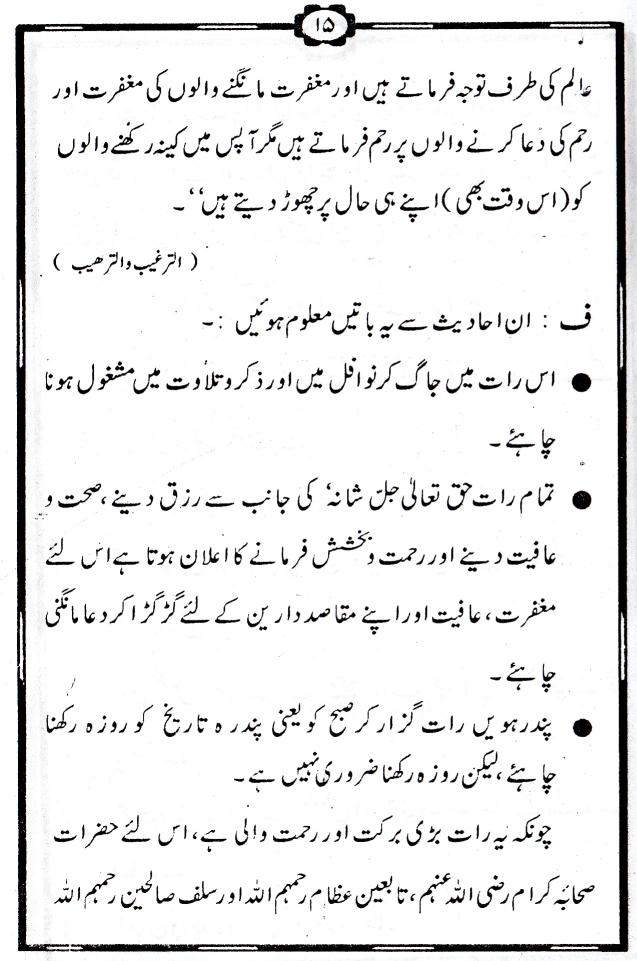 ۱۵
عالم کی طرف توجہ فرماتے ہیں اور مغفرت مانگنے والوں کی مغفرت اور
رحم کی دعا کرنے والوں پر رحم فرماتے ہیں مگر آپس میں کینہ رکھنے والوں
کو (اس وقت بھی) اپنے ہی حال پر چھوڑ دیتے ہیں‘‘۔
( الترغیب والترھیب )
ف : ان احادیث سے یہ باتیں معلوم ہوئیں :۔
● اس رات میں جاگ کر نوافل میں اور ذکر و تلاوت میں مشغول ہونا
چاہئے۔
● تمام رات حق تعالیٰ جلّ شانہٗ کی جانب سے رزق دینے، صحت و
عافیت دینے اور رحمت و بخشش فرمانے کا اعلان ہوتا ہے اس لئے
مغفرت، عافیت اور اپنے مقاصد دارین کے لئے گڑگڑا کر دعا مانگنی
چاہئے۔
● پندرہویں رات گزار کر صبح کو یعنی پندرہ تاریخ کو روزہ رکھنا
چاہئے، لیکن روزہ رکھنا ضروری نہیں ہے۔
چونکہ یہ رات بڑی برکت اور رحمت والی ہے، اس لئے حضرات
صحابہ کرام رضی اللہ عنہم، تابعین عظام رحمہم اللہ اور سلف صالحین رحمہم اللہ